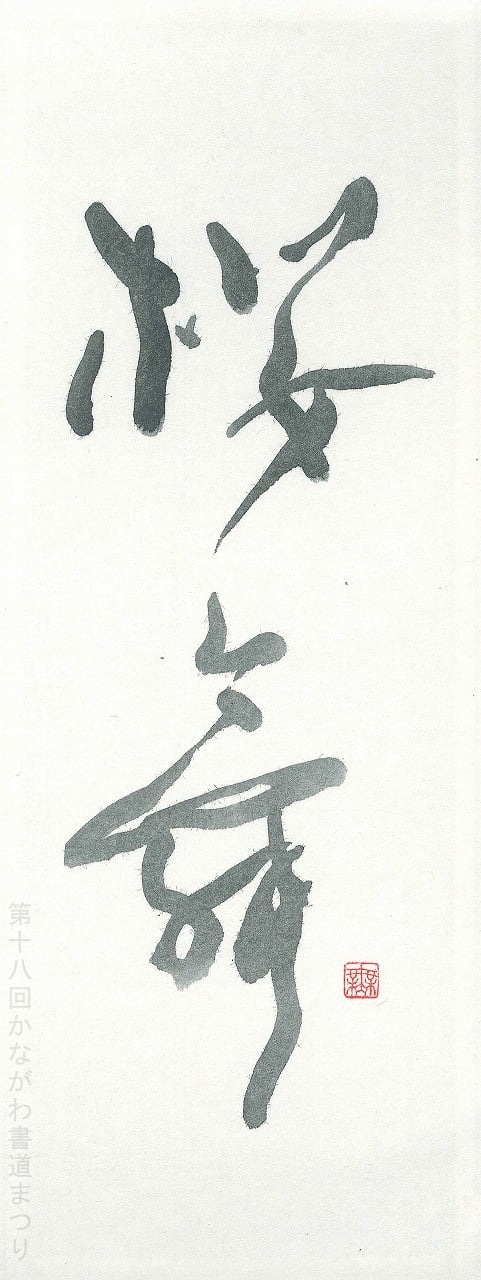 桜舞
第十八回かながわ書道まつり